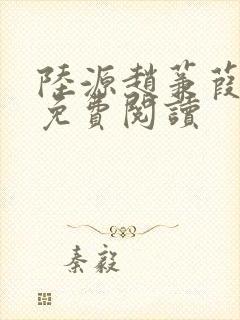 陸源趙蒹葭
免費閱讀
秦毅